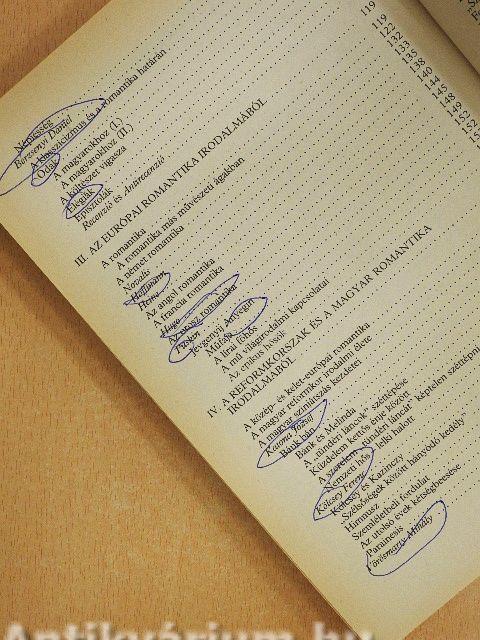 119
Népiesség
119
Berzsenyi Dániel
122
A klasszicizmus és a romantika határán
132
Ódák
133
A magyarokhoz (I.)
135
A magyarokhoz (II.)
138
A költészet vigasza
140
Elégiák
144
Episztolák
145
Recenzió és Antirecenzió
148
III. AZ EURÓPAI ROMANTIKA IRODALMÁBÓL
149
A romantika
A romantika más művészeti ágakban
A német romantika
Novalis
Hoffmann
Heine
Az angol romantika
A francia romantika
Hugo
Az orosz romantika
Puskin
Jevgenyij Anyegin
Műfaja
A lírai hőse
A mű világirodalmi kapcsolatai
Az epikus hősök
IV. A REFORMKORSZAK ÉS A MAGYAR ROMANTIKA
IRODALMÁBÓL
A közép- és kelet-európai romantika
A magyar reformkor irodalmi élete
A magyar színjátszás kezdetei
Katona József
Bánk bán
Bánk és Melinda
A „tündéri láncok” széttépése
Küzdelem kettős énje között
A szerelem „tündéri láncát” képtelen széttépni
Nemzeti hős lelki halott
Kölcsey Ferenc
Kölcsey és Kazinczy
„Szélsőségek között hányódó kedély”
Himnusz
Szemléletbeli fordulat
Az utolsó évek kétségbeesése
Parainesis
Vörösmarty Mihály
Antikvárium.hu